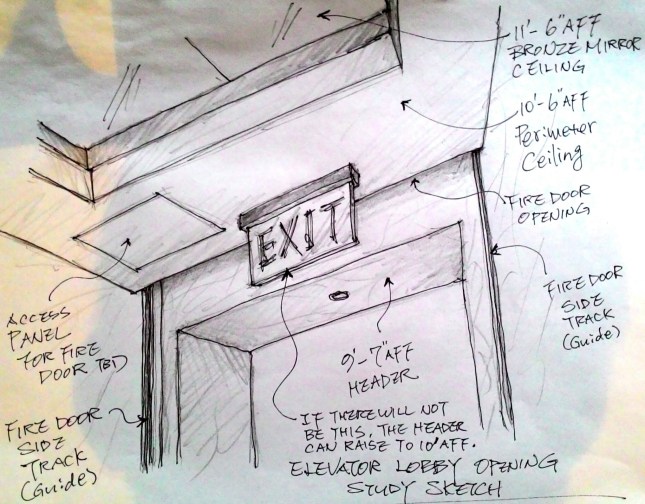 11'-6"AFF
BRONZE MIRROR
CEILING
10'-6"AFF
Perimeter
Ceiling
FIRE DOOR
OPENING
EXIT
ACCESS
PANEL
FOR FIRE
DOOR TBD
FIRE DOOR
SIDE
TRACK
(Guide)
9'-7"AFF
HEADER
IF THERE WILL NOT
BE THIS, THE HEADER
CAN RAISE TO 10'AFF.
FIRE DOOR
SIDE
TRACK
(Guide)
ELEVATOR LOBBY OPENING
STUDY SKETCH